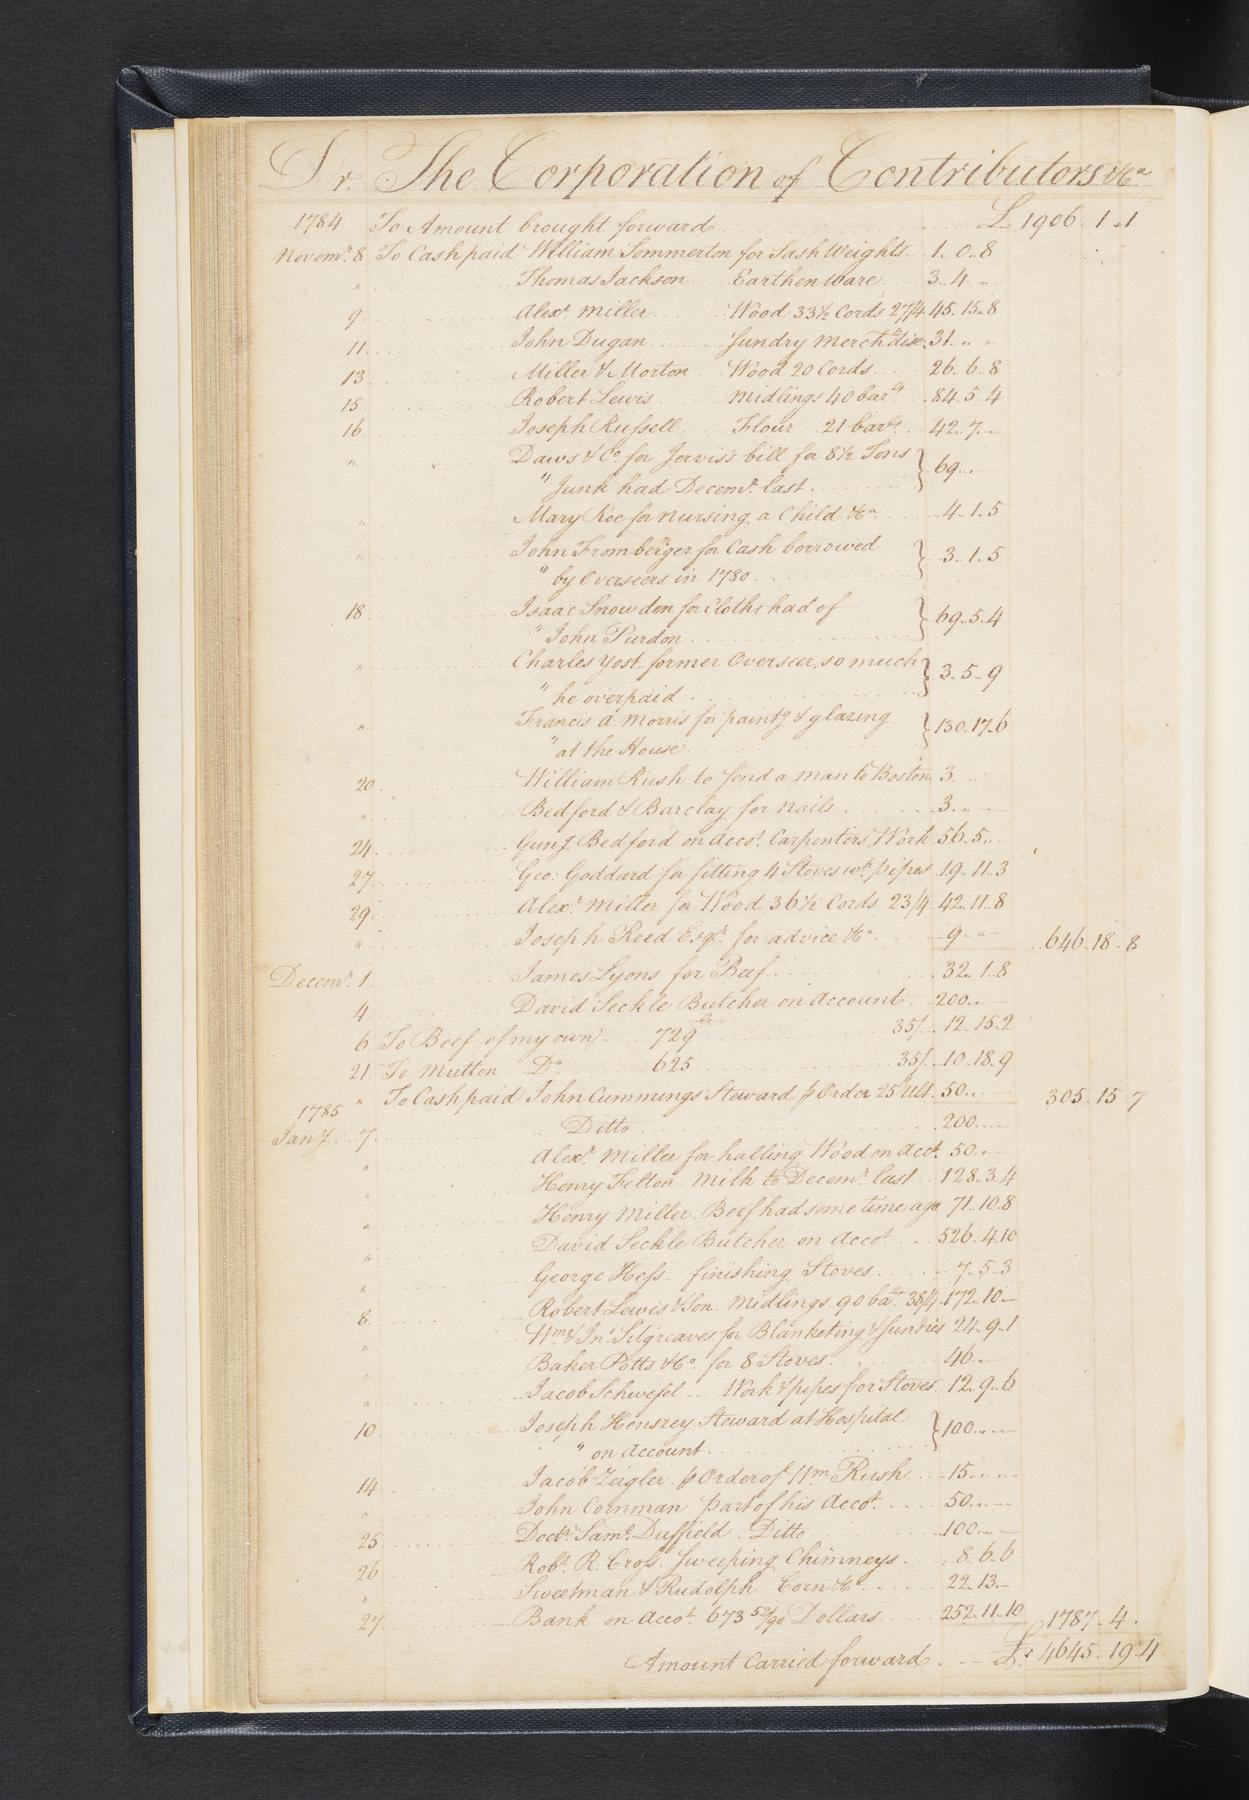 Dr. The Corporation of Contributors &ca
1784 To Amount brought forward £ 1906. 1. 1
Novemr. 8 To Cash paid William Sommerton for Sash Weights 1. 0. 8
" Thomas Jackson Earthen Ware 3. 4. "
9 Alexr. Miller Wood 33½ Cords 27/4 45. 15. 8
11 John Dugan Sundry Merchdise. 31. " "
13 Miller & Morton Wood 20 Cords 26. 6. 8
15 Robert Lewis Midlings 40 barls 84. 5. 4
16 Joseph Russell Flour 21 barls. 42. 7. -
" Daws & Co. for Jervis's bill for 8½ Tons
" Junk had Decemr. last } 69. "
" Mary Roe for nursing a Child &ca 4. 1. 5
" John Fromberger for Cash borrowed
" by Overseers in 1780 } 3. 1. 5
18 Isaac Snowden for Cloths had of
" John Purdon } 69. 5. 4
" Charles Yost former Overseer, so much
" he overpaid } 3. 5. 9
" Francis d. Morris for paintg & glazing
" at the House } 130. 17. 6
20 William Rush to send a man to Boston 3.
" Bedford & Barclay for nails 3. " -
24 Gung. Bedford on Accot. Carpenters Work 56. 5. "
27 Geo: Goddard for fitting 4 Stoves wth. pipes 19. 11. 3
29 Alexr. Miller for Wood 36½ Cords 23/4 42. 11. 8
" Joseph Reed Esqr. for advice &ca 9. " - 646. 18. 8
Decemr. 1 James Lyons for Beef 32. 1. 8
4 David Seckle Butcher on Account 200. "
6 To Beef of my own 729 35/. 12. 15. 2
21 To Mutton Do. 625 35/. 10. 18. 9
" To Cash paid John Cummings Steward p Order 25 Ult. 50. " - 305. 15 7
1785
Jany. 7 Ditto 200. "
" Alexr. Miller for halling Wood on Acct. 50. "
" Henry Felton Milk to Decemr. last 128. 3. 4
" Henry Miller Beef had some time ago 71. 10. 8
" David Seckle Butcher on Accot. 526. 4. 10
" George Hess finishing Stoves 7. 5. 3
8 Robert Lewis & Son Midlings 90 bar. 38/4 172. 10 -
" Wm. & Jn. Silgreaves for Blanketing & sundries 24. 9. 1
" Baker Potts & Co. for 8 Stoves 46. "
" Jacob Schwefel Work & pipes for Stoves 12. 9. 6
10 Joseph Henszey Steward at Hospital
" on Account } 100. " -
14 Jacob Zeigler p Order of Wm Rush 15. " "
" John Cornman part of his Accot. 50. " -
25 Doctr. Saml. Duffield Ditto 100. " -
26 Robt. R. Cross Sweeping Chimneys 8. 6. 6
" Sweetman & Rudolph Corn &c 22. 13. -
27 Bank on Accot. 673 52/90 Dollars 252. 11. 10 1787. 4.
Amount Carried forward £ 4645. 19. 4